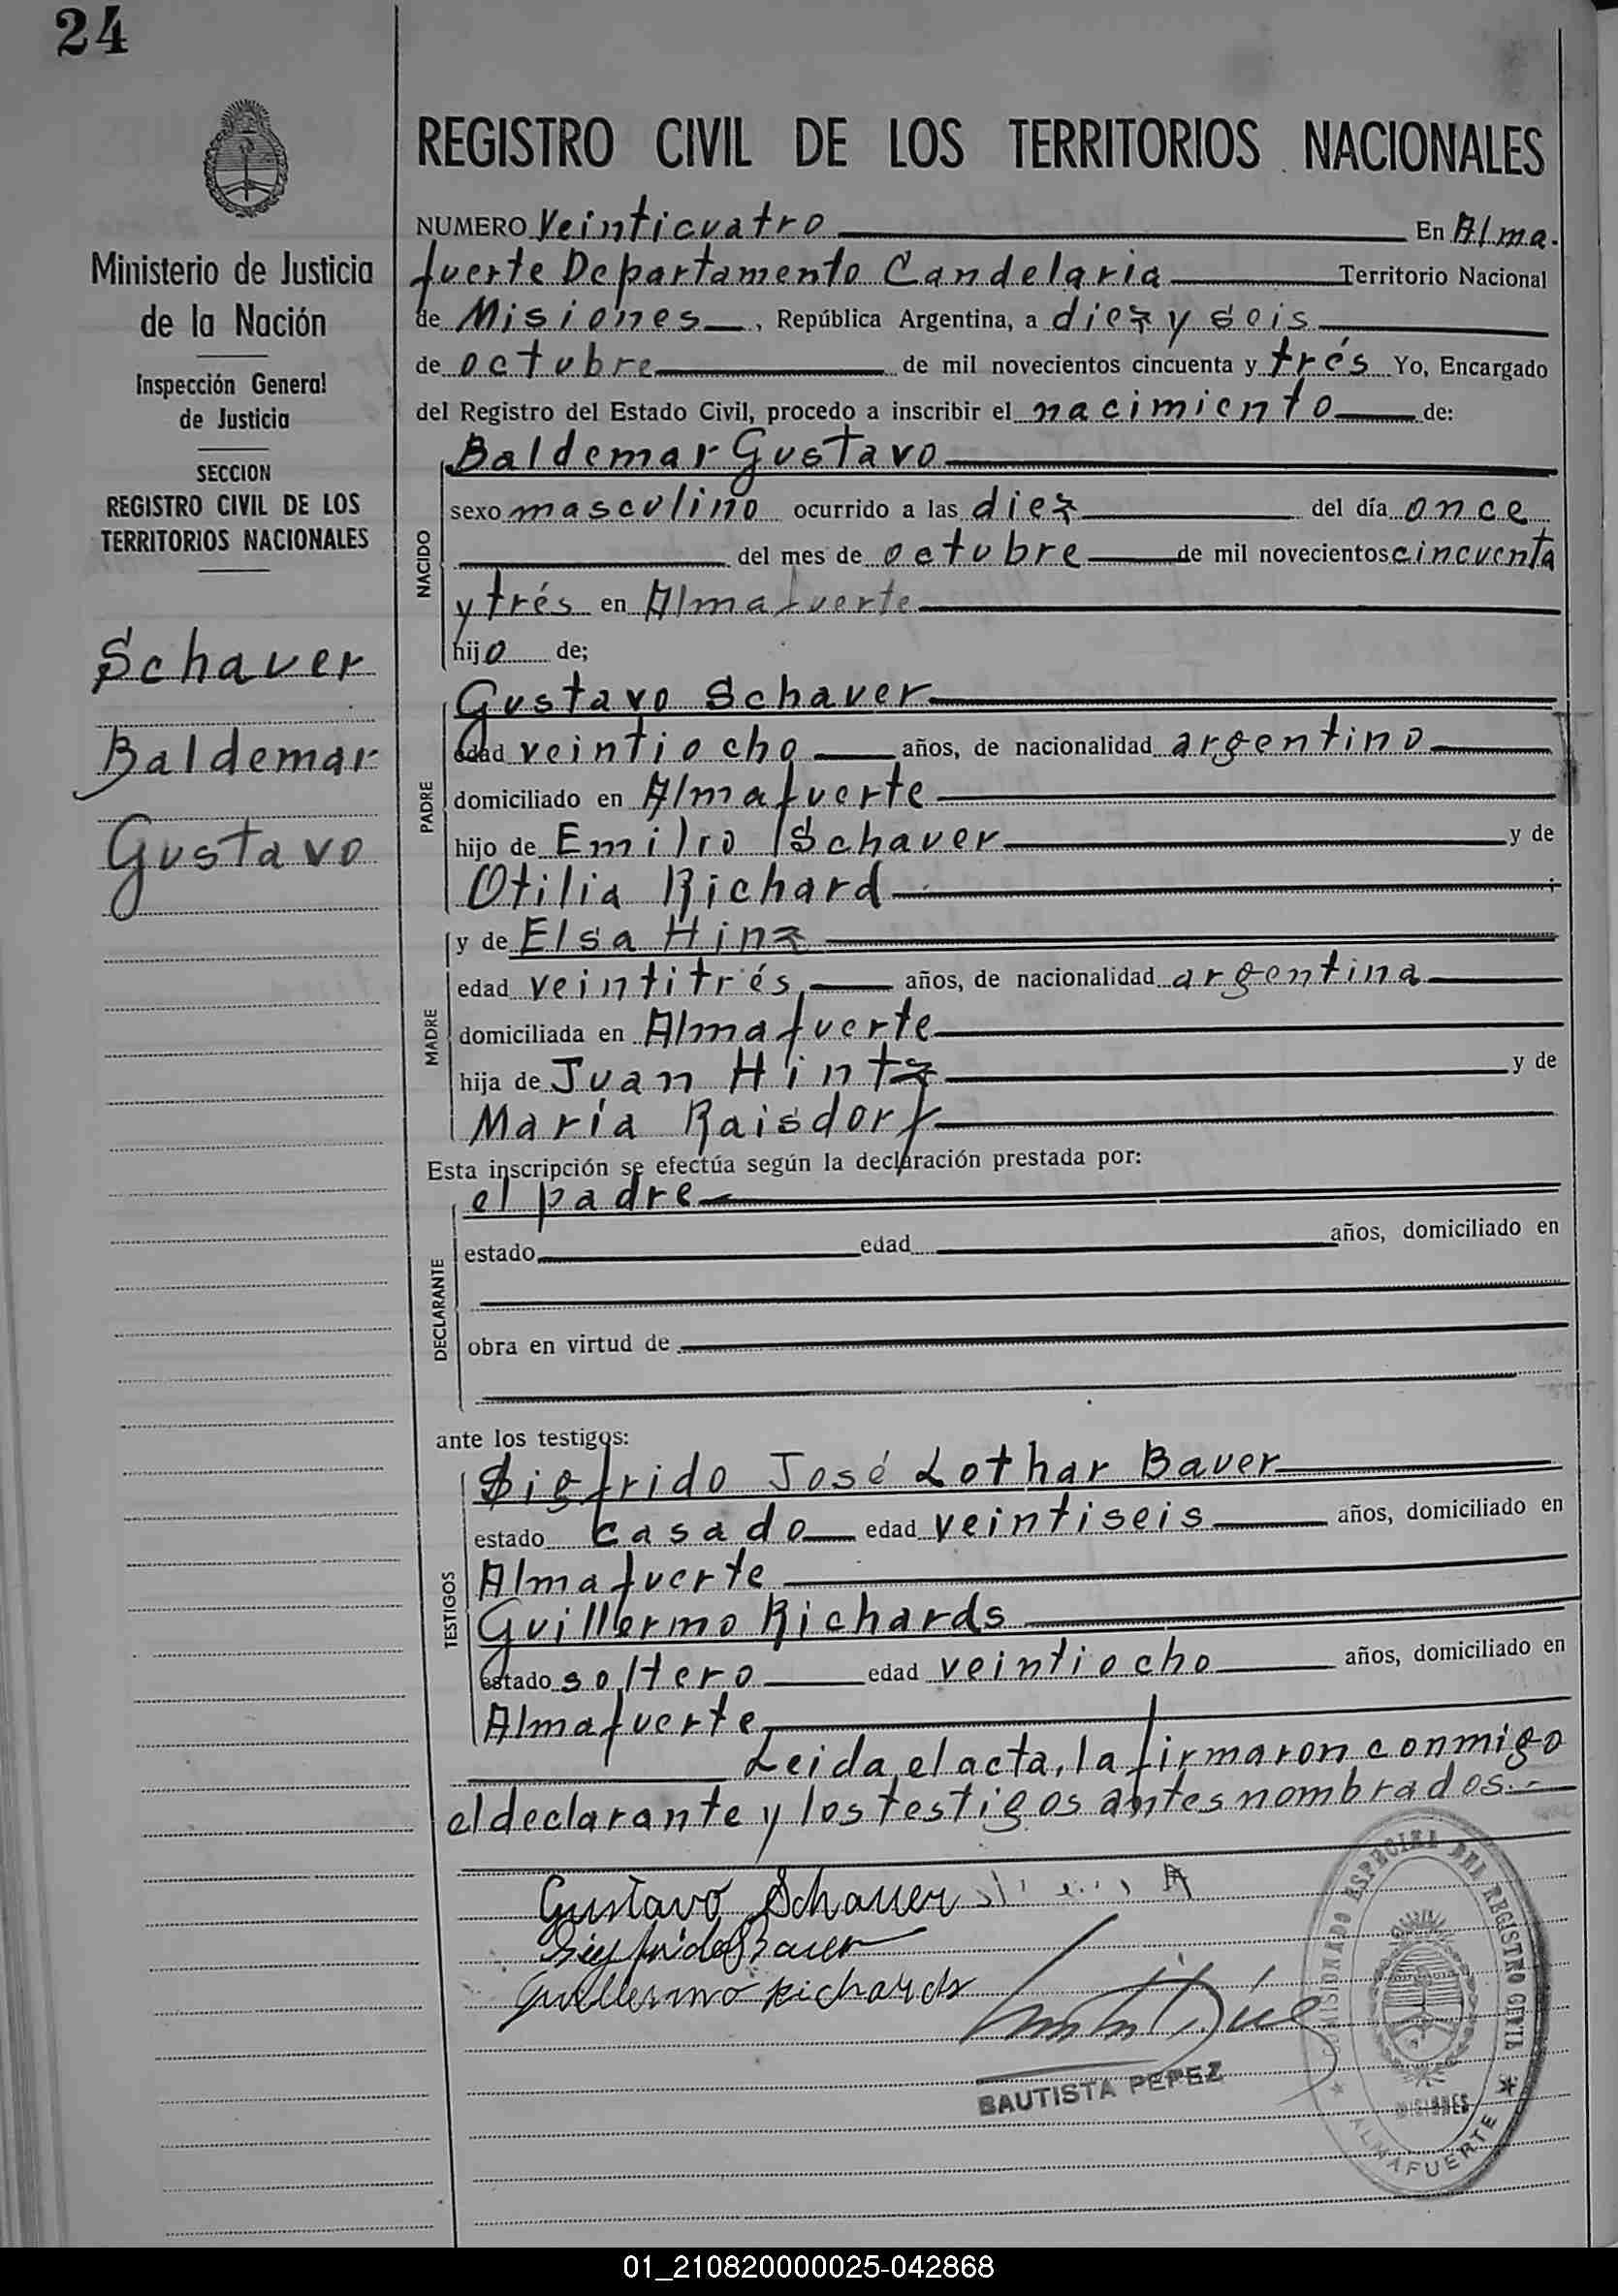 24
Ministerio de Justicia
de la Nación
Inspección General
de Justicia
SECCION
REGISTRO CIVIL DE LOS
TERRITORIOS NACIONALES
Schauer
Baldemar
Gustavo
REGISTRO CIVIL DE LOS TERRITORIOS NACIONALES
NUMERO Veinticuatro En Alma.
fuerte Departamento Candelaria Territorio Nacional
de Misiones, República Argentina, a diez y seis
de octubre de mil novecientos cincuenta y trés Yo, Encargado
del Registro del Estado Civil, procedo a inscribir el nacimiento de:
NACIDO
Baldemar Gustavo
sexo masculino ocurrido a las diez del día once
del mes de octubre de mil novecientos cincuenta
y trés en Almafuerte
hijo de;
PADRE
Gustavo Schauer
edad veintiocho años, de nacionalidad argentino
domiciliado en Almafuerte
hijo de Emilio Schauer y de
Otilia Richard
MADRE
y de Elsa Hinz
edad veintitrés años, de nacionalidad argentina
domiciliada en Almafuerte
hija de Juan Hintz y de
María Raisdorf
Esta inscripción se efectúa según la declaración prestada por:
DECLARANTE
el padre
estado edad años, domiciliado en
obra en virtud de
ante los testigos:
TESTIGOS
Sigfrido José Lothar Bauer
estado casado edad veintiseis años, domiciliado en
Almafuerte
Guillermo Richards
estado soltero edad veintiocho años, domiciliado en
Almafuerte
Leida el acta, la firmaron conmigo
el declarante y los testigos antes nombrados.-
Gustavo Schauer
Sigfrido Bauer
Guillermo Richards
BAUTISTA PEPEZ
COMISIONADO ESPECIAL DEL REGISTRO CIVIL
MISIONES
ALMAFUERTE
01_210820000025-042868